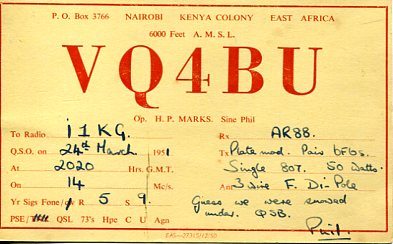 P. O. Box 3766 NAIROBI KENYA COLONY EAST AFRICA
6000 Feet A. M. S. L.
VQ4BU
Op. H. P. MARKS. Sine Phil
To Radio i1KG. Rx AR88.
Q.S.O. on 24th March 1951 Tx Plate mod. Pair 6F6s.
At 2020 Hrs G.M.T. Single 807. 50 Watts.
On 14 Mc/s. Ant 3 wire F. Di-Pole
Yr Sigs Fone/ R 5 S 9 Guess we were snowed
PSE/ QSL 73's Hpe C U Agn under. QSB.
Phil.